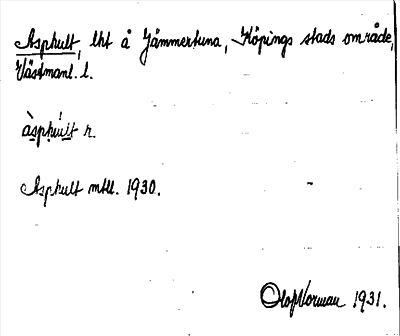 Asphult, lht å Jämmertuna, Köpings stads område,
Västmanl. l.
àsphúlt n.
Asphult mtl. 1930.
Olof Norman 1931.